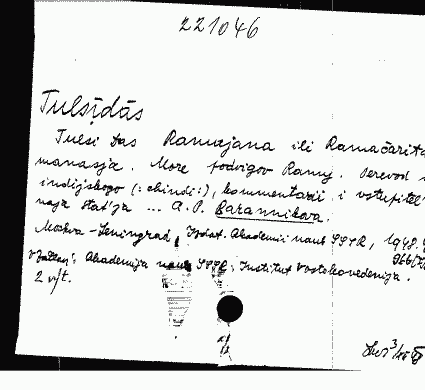 221046
Tulsīdās
Tulsi Das Ramajana ili Ramačarita
manasja. More podvigov Ramy. Perevod
indijskogo (:chindi:), kommentarii i vstupitel
naja stat'ja ... A.P. Barannikova.
Moskva-Leningrad, Izdat. Akademii nauk SSSR, 1948.
Akademija nauk SSSR, Institut Vostokovedenija.
2